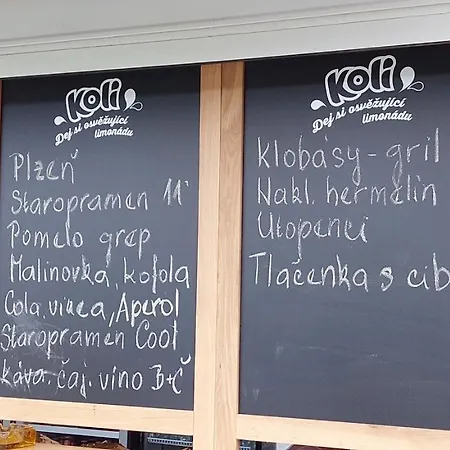 Koli
Dej si osvěžující
limonádu
Plzeň
Staropramen 11°
Pomelo grep
Malinovka, kofola
Cola, vinea, Aperol
Staropramen Cool
káva, čaj, víno B+Č
Koli
Dej si osvěžující
limonádu
Klobásy - gril
Nakl. hermelín
Utopenci
Tlačenka s cib